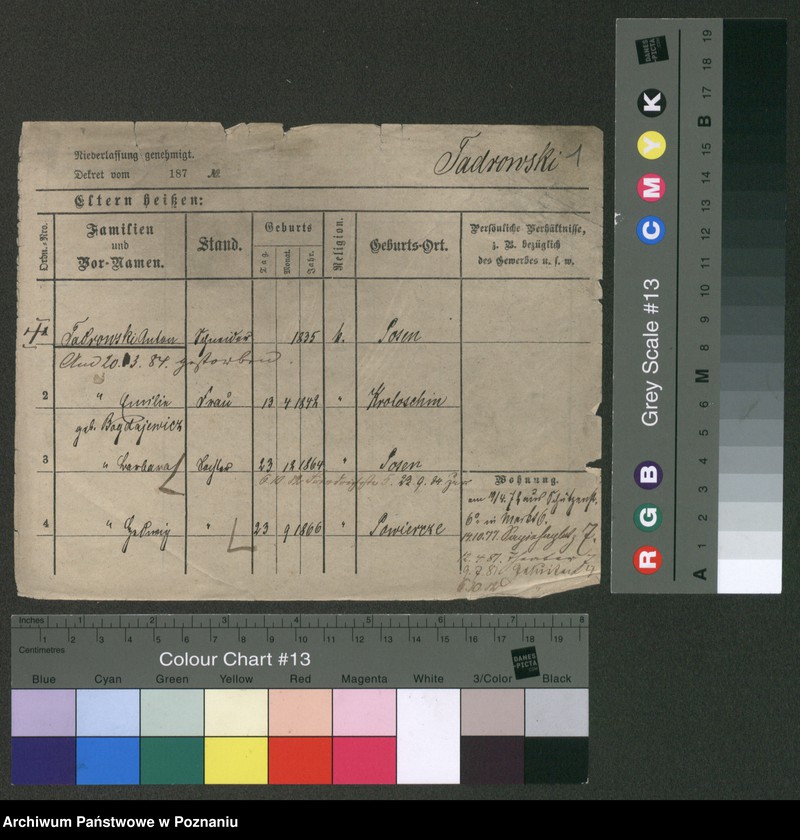 Niederlassung genehmigt.
Dekret vom 187 №
Tadrowski 1
Eltern heißen:
Ordn.-Nro.
Familien
und
Vor-Namen.
Stand.
Geburts
Tag.
Monat.
Jahr.
Religion.
Geburts-Ort.
Persönliche Verhältnisse,
z. B. bezüglich
des Gewerbes u. s. w.
1 Tadrowski Anton Schneider 1835 k. Posen
Am 20. 3. 84. gestorben.
2 " Emilie Frau 13 4 1842 " Kroloschin
geb. Bogdajewicz
3 " Barbara Tochter 23 12 1864 " Posen
22. 9. 84
4 " Hedwig " 23 9 1866 "
Wohnung.
aus Schützenstr.
6ª in Markt
14.10.77.
12.4.81.
Grey Scale #13
DANES
PICTA
.COM
R G B C M Y K
A 1 2 3 4 5 6 M 8 9 10 11 12 13 14 15 B 17 18 19
Inches 1 2 3 4 5 6 7 8
1 2 3 4 5 6 7 8 9 10 11 12 13 14 15 16 17 18 19
Centimetres
Colour Chart #13
DANES
PICTA
.COM
Blue Cyan Green Yellow Red Magenta White 3/Color Black
Archiwum Państwowe w Poznaniu